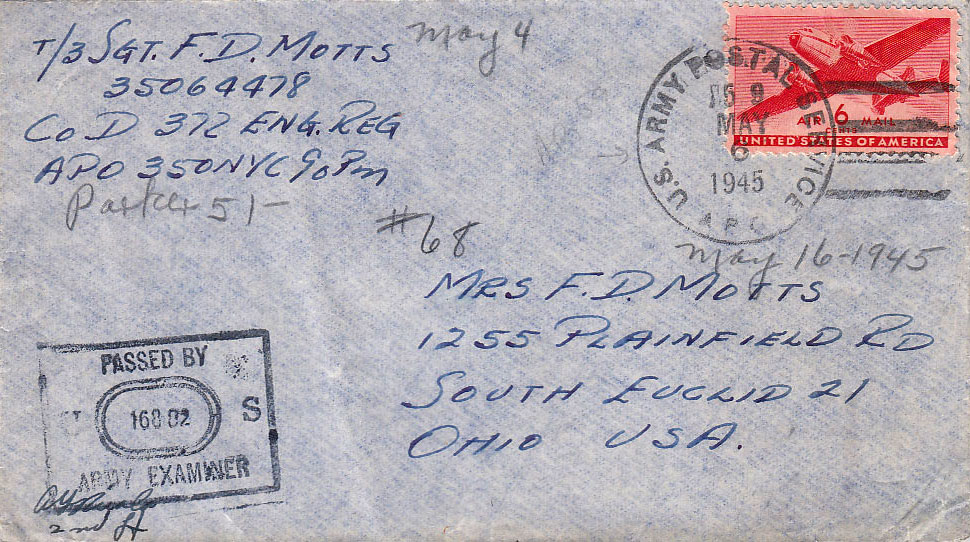 T/3 SGT. F. D. MOTTS
35064478
CO D 372 ENG. REG
APO 350 NYC 90 PM
Parker 51-
May 4
U.S. ARMY POSTAL SERVICE
MAY
6
1945
A.P.O.
AIR 6 MAIL
CENTS
UNITED STATES OF AMERICA
#68
May 16-1945
MRS F. D. MOTTS
1255 PLAINFIELD RD
SOUTH EUCLID 21
OHIO USA.
PASSED BY
U 16802 S
ARMY EXAMINER
2nd Lt